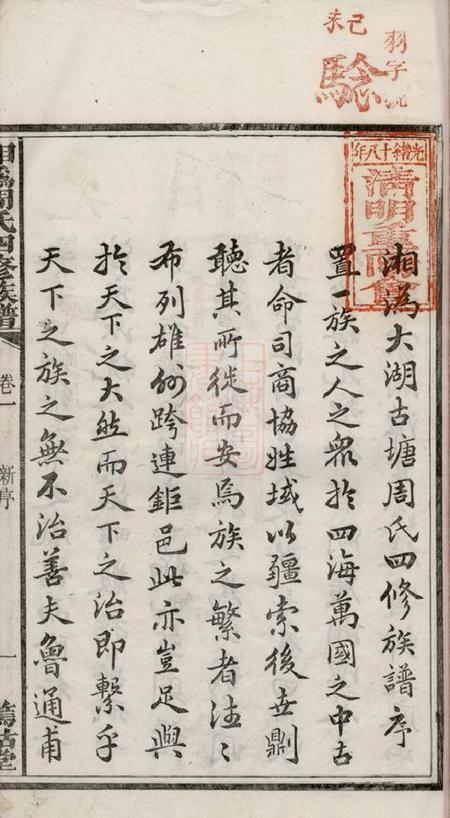 己未
羽字
驗
光緒十八年
清明
湘潙大湖古塘周氏四修族譜序
置一族之人之眾於四海萬國之中古
者命司商協姓域以疆索後世劃
聽其所從而安焉族之繁者往〻
布列雄州跨連鉅邑此亦豈足與
於天下之大然而天下之治即繫乎
天下之族之無不治善夫魯通甫
周氏四修族譜
卷一
新序
一